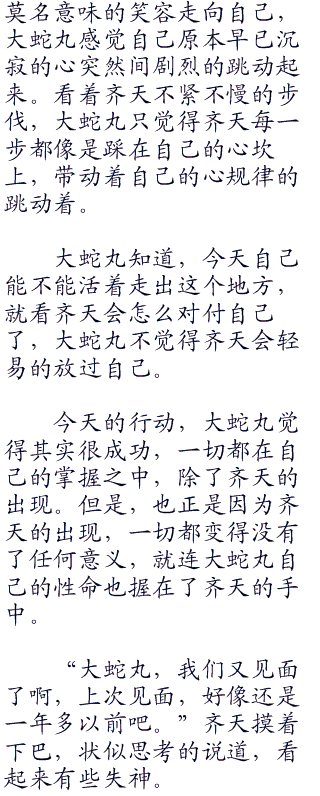 莫名意味的笑容走向自己，
大蛇丸感觉自己原本早已沉
寂的心突然间剧烈的跳动起
来。看着齐天不紧不慢的步
伐，大蛇丸只觉得齐天每一
步都像是踩在自己的心坎
上，带动着自己的心规律的
跳动着。
大蛇丸知道，今天自己
能不能活着走出这个地方，
就看齐天会怎么对付自己
了，大蛇丸不觉得齐天会轻
易的放过自己。
今天的行动，大蛇丸觉
得其实很成功，一切都在自
己的掌握之中，除了齐天的
出现。但是，也正是因为齐
天的出现，一切都变得没有
了任何意义，就连大蛇丸自
己的性命也握在了齐天的手
中。
“大蛇丸，我们又见面
了啊，上次见面，好像还是
一年多以前吧。”齐天摸着
下巴，状似思考的说道，看
起来有些失神。